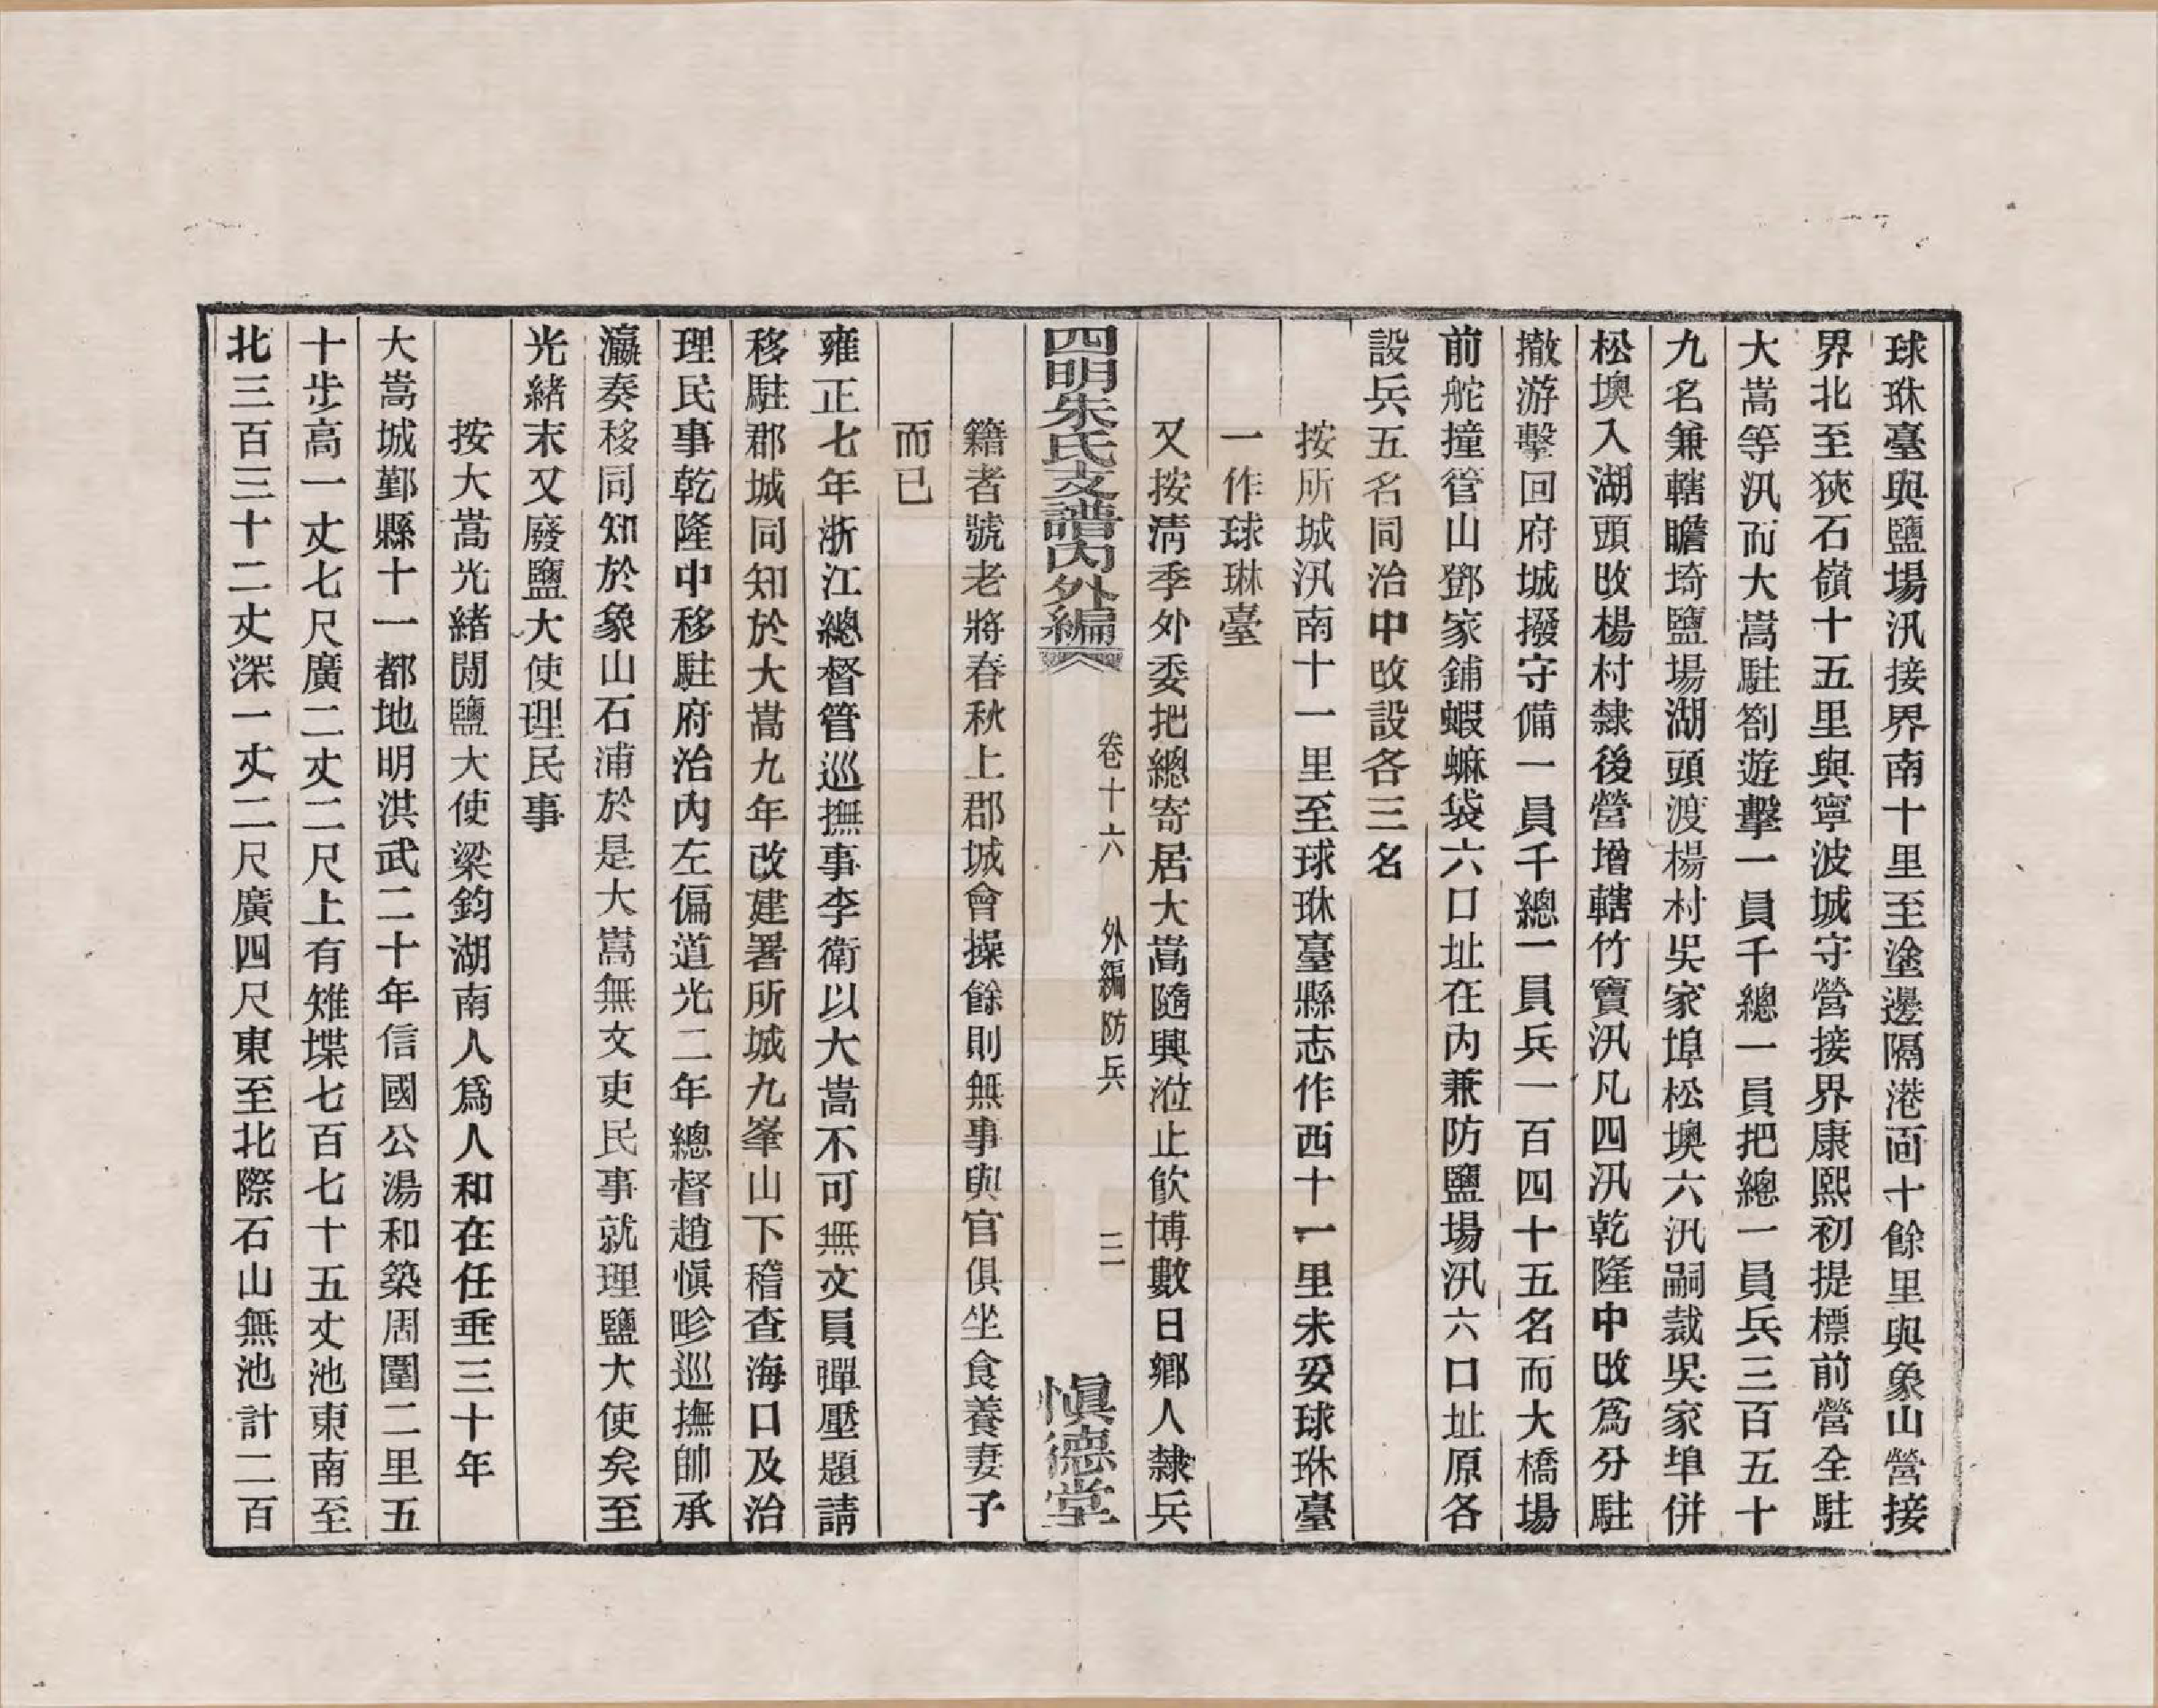 球琳臺與鹽場汛接界南十里至塗邊隔港面十餘里與象山營接
界北至狹石嶺十五里與寧波城守營接界康熙初提標前營全駐
大嵩等汛而大嵩駐劄遊擊一員千總一員把總一員兵三百五十
九名兼轄瞻埼鹽場湖頭渡楊村吳家埠松墺六汛嗣裁吳家埠併
松墺入湖頭改楊村隸後營增轄竹竇汛凡四汛乾隆中改爲分駐
撤游擊回府城撥守備一員千總一員兵一百四十五名而大橋場
前舵撞管山鄧家鋪蝦蟆袋六口址在內兼防鹽場汛六口址原各
設兵五名同治中改設各三名
按所城汛南十一里至球琳臺縣志作西十一里未妥球琳臺
一作球琳臺
又按淸季外委把總寄居大嵩隨興涖止飮博數日鄕人隸兵
四明朱氏支譜內外編
卷十六 外編 防兵 三
愼德堂
籍者號老將春秋上郡城會操餘則無事與官俱坐食養妻子
而已
雍正七年浙江總督管巡撫事李衛以大嵩不可無文員彈壓題請
移駐郡城同知於大嵩九年改建署所城九峯山下稽查海口及治
理民事乾隆中移駐府治內左偏道光二年總督趙愼畛巡撫帥承
瀛奏移同知於象山石浦於是大嵩無文吏民事就理鹽大使矣至
光緒末又廢鹽大使理民事
按大嵩光緒閒鹽大使梁鈞湖南人爲人和在任垂三十年
大嵩城鄞縣十一都地明洪武二十年信國公湯和築周圍二里五
十步高一丈七尺廣二丈二尺上有雉堞七百七十五丈池東南至
北三百三十二丈深一丈二尺廣四尺東至北際石山無池計二百